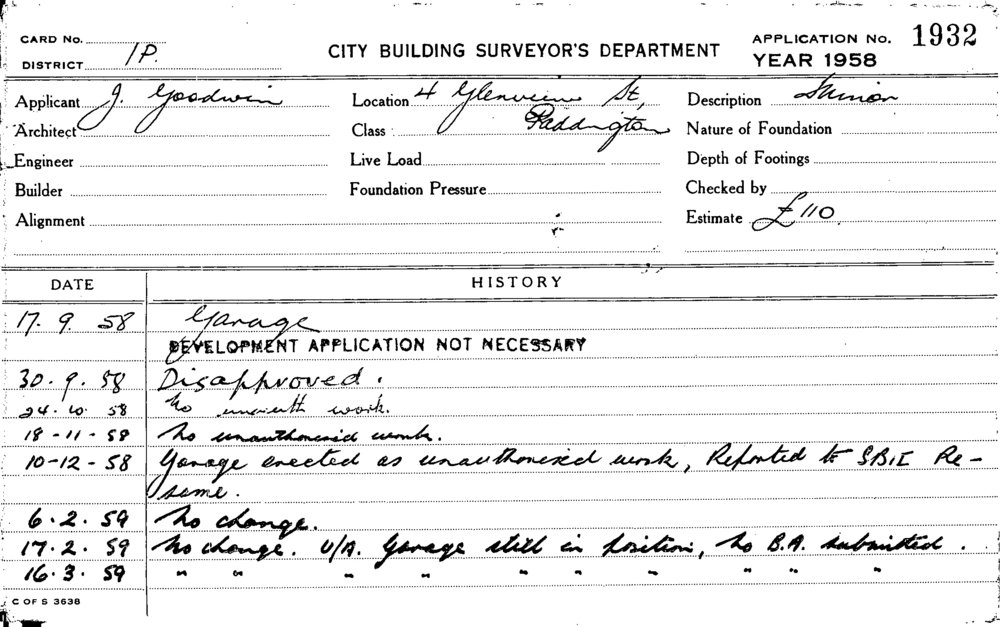 CARD No.
DISTRICT 1P.
CITY BUILDING SURVEYOR'S DEPARTMENT
APPLICATION No. 1932
YEAR 1958
Applicant J. Goodwin
Location 4 Glenview St,
Description Minor
Architect
Class Paddington
Nature of Foundation
Engineer
Live Load
Depth of Footings
Builder
Foundation Pressure
Checked by
Alignment
Estimate £110
DATE HISTORY
17. 9. 58 Garage
DEVELOPMENT APPLICATION NOT NECESSARY
30. 9. 58 Disapproved.
24. 10. 58 No unauth work.
18-11-58 No unauthorised work.
10-12-58 Garage erected as unauthorised work, Reported to SBIE Re-
same.
6. 2. 59 No change.
17. 2. 59 No change. U/A. Garage still in position, No B.A. submitted.
16. 3. 59 " " " " " " " " " "
C OF S 3638